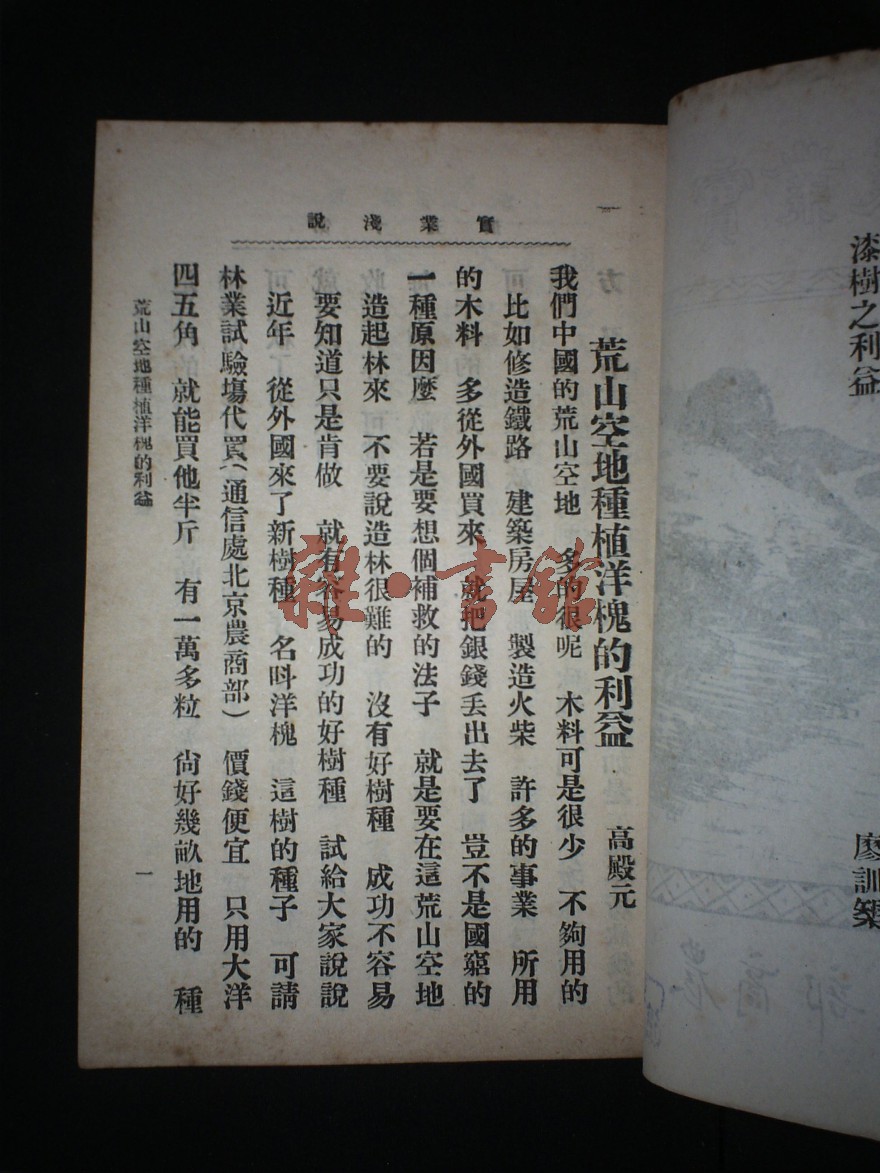 漆樹之利益
廖訓築
實業淺說
一
荒山空地種植洋槐的利益 高殿元
我們中國的荒山空地 多的很呢 木料可是很少 不夠用的
比如修造鐵路 建築房屋 製造火柴 許多的事業 所用
的木料 多從外國買來 就把銀錢丟出去了 豈不是國窮的
一種原因麼 若是要想個補救的法子 就是要在這荒山空地
造起林來 不要說造林很難的 沒有好樹種 成功不容易
要知道只是肯做 就有容易成功的好樹種 試給大家說說
近年 從外國來了新樹種 名叫洋槐 這樹的種子 可請
林業試驗場代買(通信處北京農商部) 價錢便宜 只用大洋
四五角 就能買他半斤 有一萬多粒 尙好幾畝地用的 種
荒山空地種植洋槐的利益
一
雜·書館